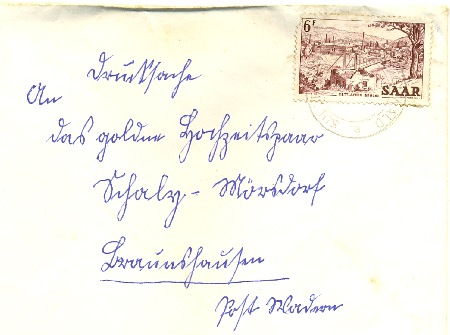 6F
SAAR
Drucksache
An
das goldne Hochzeitspaar
Schaly - Mörsdorf
Braunshausen
Post Wadern